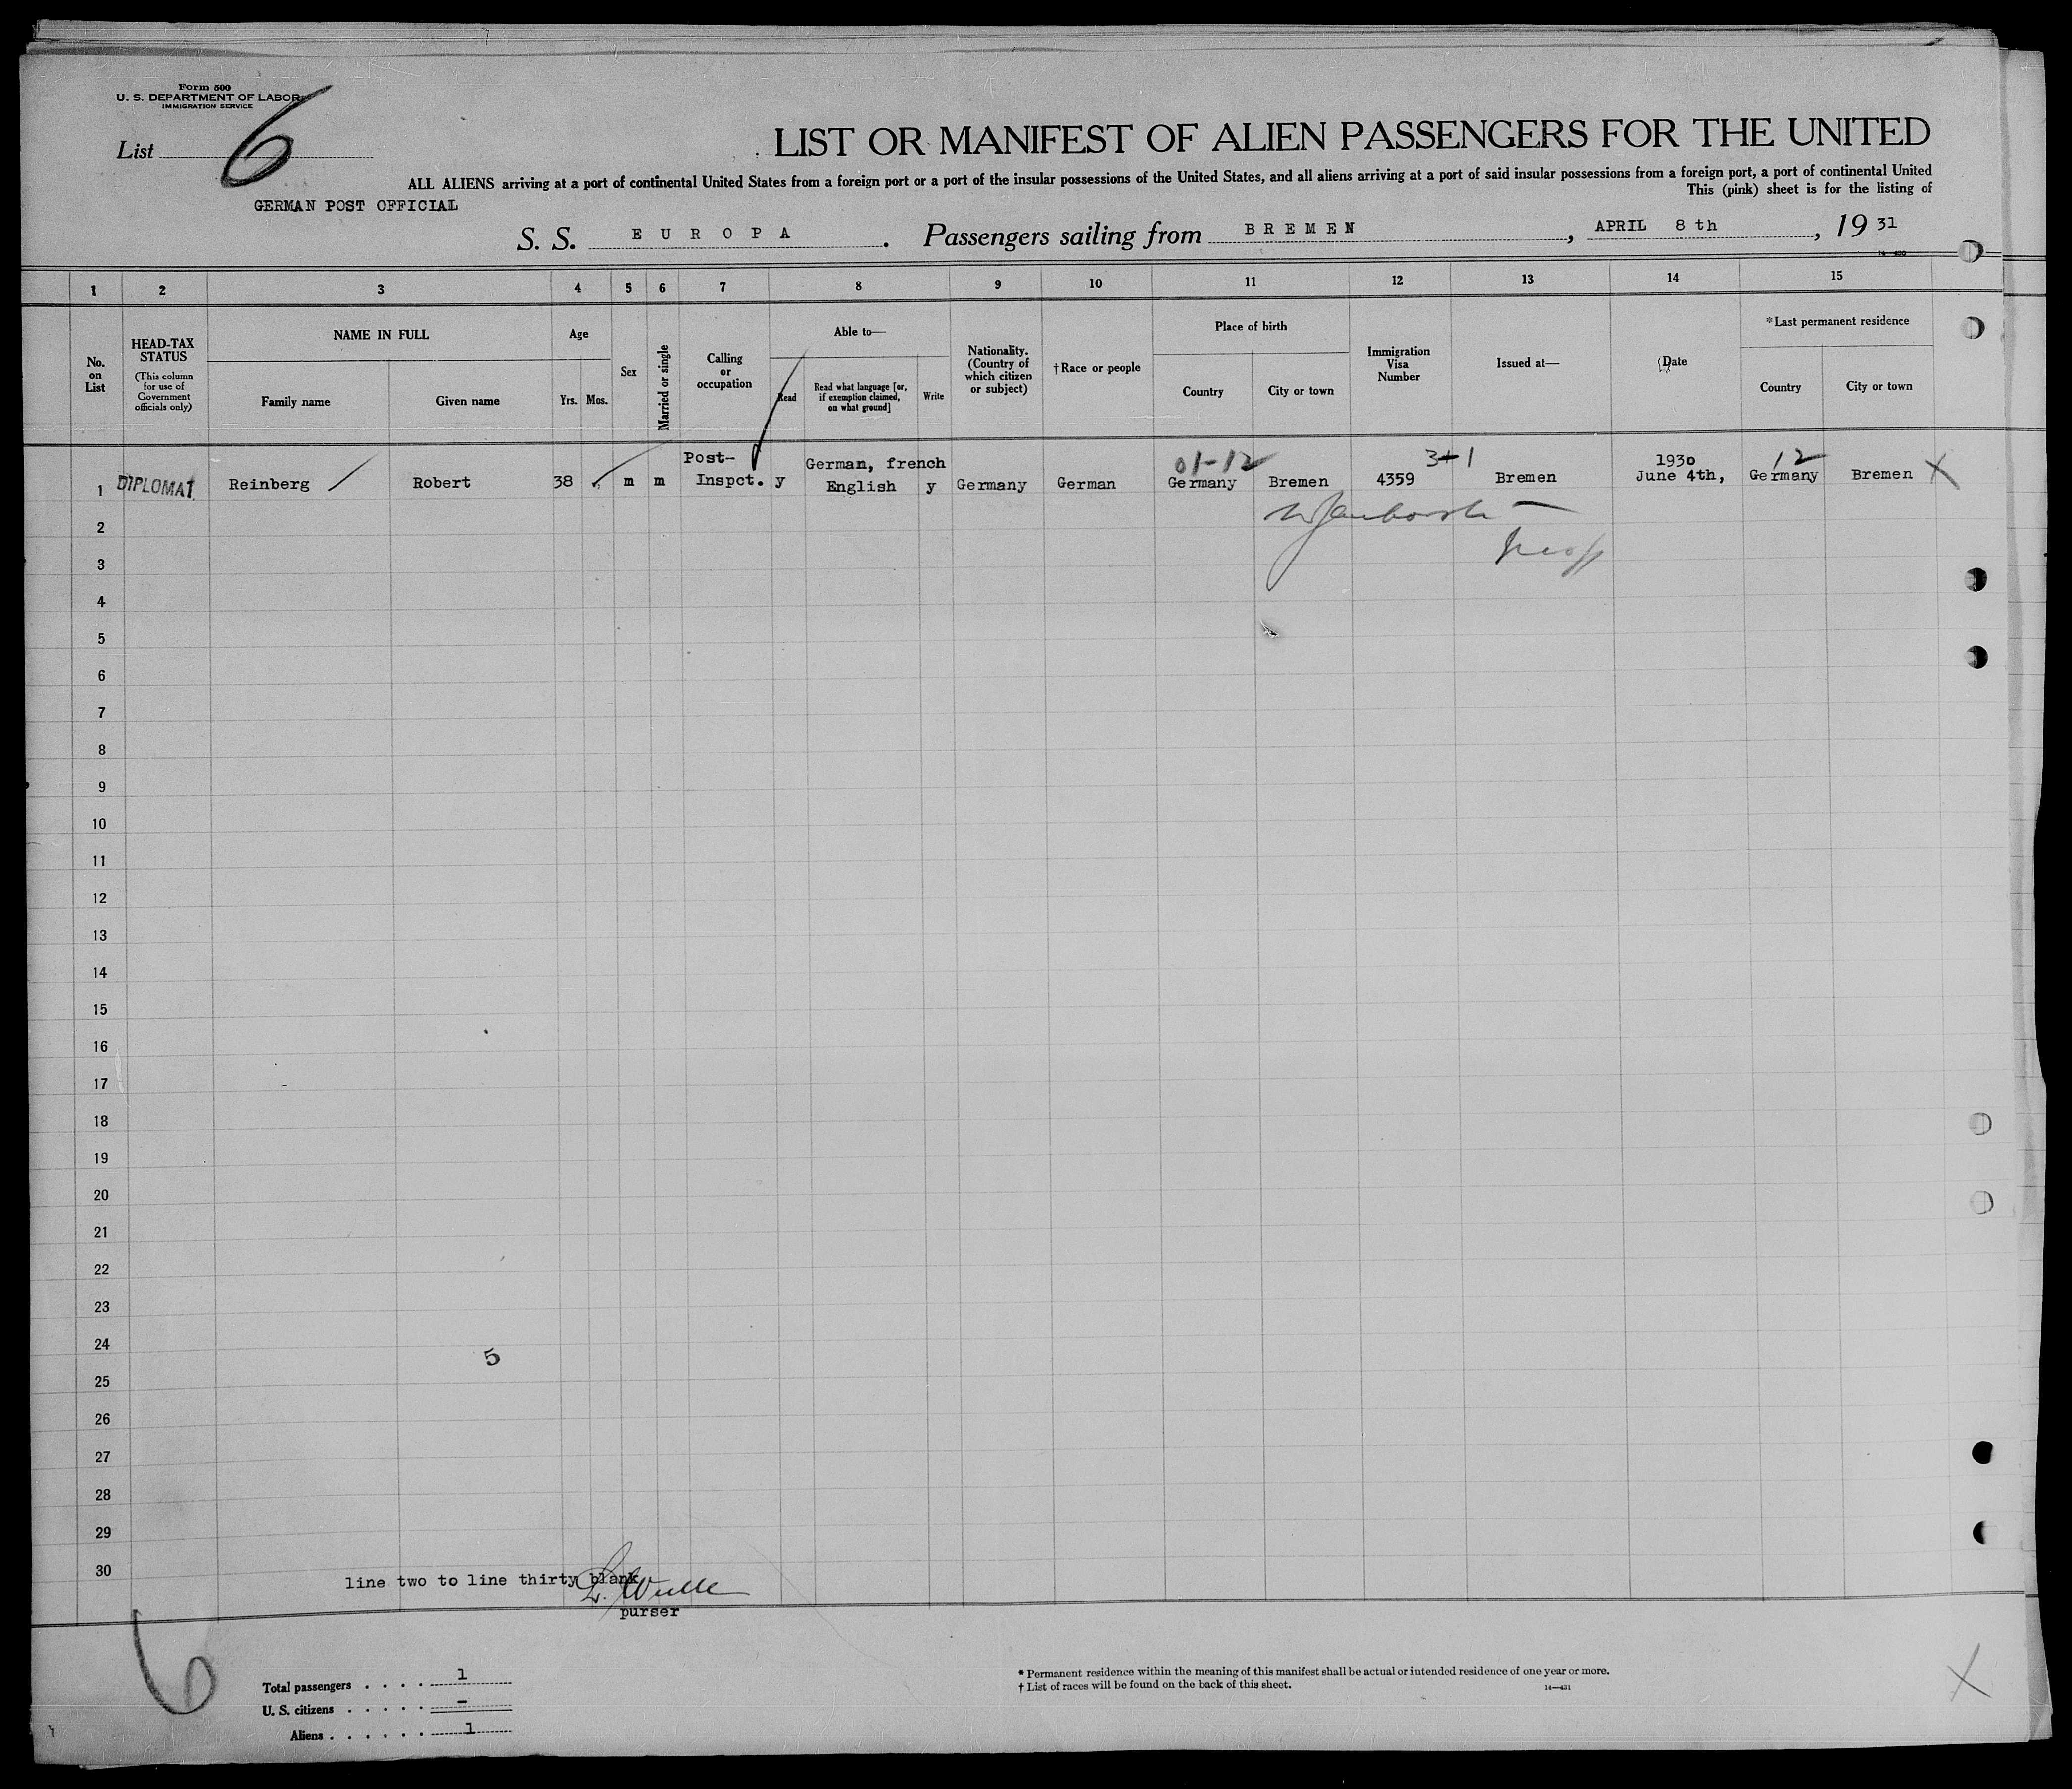 Form 500
U. S. DEPARTMENT OF LABOR
IMMIGRATION SERVICE
List 6
LIST OR MANIFEST OF ALIEN PASSENGERS FOR THE UNITED
ALL ALIENS arriving at a port of continental United States from a foreign port or a port of the insular possessions of the United States, and all aliens arriving at a port of said insular possessions from a foreign port, a port of continental United
This (pink) sheet is for the listing of
GERMAN POST OFFICIAL
S. S. EUROPA. Passengers sailing from BREMEN, APRIL 8th, 1931
14-430
1 2 3 4 5 6 7 8 9 10 11 12 13 14 15
No. on List
HEAD-TAX STATUS
(This column for use of Government officials only)
NAME IN FULL
Family name Given name
Age
Yrs. Mos.
Sex
Married or single
Calling or occupation
Able to—
Read
Read what language [or, if exemption claimed, on what ground]
Write
Nationality. (Country of which citizen or subject)
†Race or people
Place of birth
Country City or town
Immigration Visa Number
Issued at—
Date
*Last permanent residence
Country City or town
Post- German, french 01-12 3+1 1930 12
1 DIPLOMAT Reinberg Robert 38 m m Inspct. y English y Germany German Germany Bremen 4359 Bremen June 4th, Germany Bremen X
2
3
4
5
6
7
8
9
10
11
12
13
14
15
16
17
18
19
20
21
22
23
24
5
25
26
27
28
29
30
line two to line thirty blank
purser
6
Total passengers . . . . 1
U. S. citizens . . . . . —
Aliens . . . . . . 1
* Permanent residence within the meaning of this manifest shall be actual or intended residence of one year or more.
† List of races will be found on the back of this sheet.
14—431
X